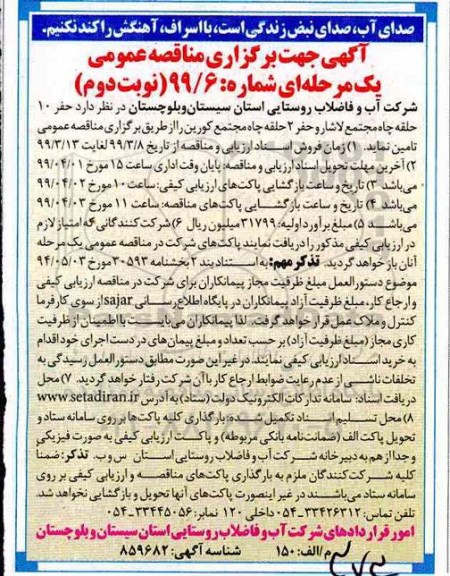 صدای آب، صدای نبض زندگی است، با اسراف، آهنگش را کند نکنیم.
آگهی جهت برگزاری مناقصه عمومی
یک مرحله‌ای شماره: ۹۹/۶ (نوبت دوم)
شرکت آب و فاضلاب روستایی استان سیستان وبلوچستان در نظر دارد حفر ۱۰
حلقه چاه مجتمع لاشار و حفر ۲ حلقه چاه مجتمع کورین را از طریق برگزاری مناقصه عمومی
تامین نماید. ۱) زمان فروش اسناد ارزیابی و مناقصه از تاریخ ۹۹/۳/۸ لغایت ۹۹/۳/۱۳
۲) آخرین مهلت تحویل اسناد ارزیابی و مناقصه: پایان وقت اداری ساعت ۱۵ مورخ ۹۹/۰۴/۰۱
می‌باشد. ۳) تاریخ و ساعت بازگشایی پاکت‌های ارزیابی کیفی: ساعت ۱۰ مورخ ۹۹/۰۴/۰۲
می‌باشد. ۴) تاریخ و ساعت بازگشایی پاکت‌های مناقصه: ساعت ۱۱ مورخ ۹۹/۰۴/۰۳
می‌باشد. ۵) مبلغ برآورد اولیه: ۳۱۷۹۹ میلیون ریال ۶) شرکت کنندگانی که امتیاز لازم
در ارزیابی کیفی مذکور را دریافت نمایند پاکت‌های شرکت در مناقصه عمومی یک مرحله
آنان باز خواهد گردید. تذکر مهم: به استناد بند ۲ بخشنامه ۳۰۵۹۳ مورخ ۹۴/۰۵/۰۳
موضوع دستورالعمل مبلغ ظرفیت مجاز پیمانکاران برای شرکت در مناقصه ارزیابی کیفی
و ارجاع کار، مبلغ ظرفیت آزاد پیمانکاران در پایگاه اطلاع رسانی sajar از سوی کارفرما
کنترل و ملاک عمل قرار خواهد گرفت. لذا پیمانکاران می‌بایست با اطمینان از ظرفیت
کاری مجاز (مبلغ ظرفیت آزاد) بر حسب تعداد و مبلغ پیمان‌های در دست اجرای خود اقدام
به خرید اسناد ارزیابی کیفی نمایند. در غیر این صورت مطابق دستورالعمل رسیدگی به
تخلفات ناشی از عدم رعایت ضوابط ارجاع کار با آن شرکت رفتار خواهد گردید. ۷) محل
دریافت اسناد: سامانه تدارکات الکترونیک دولت (ستاد) به آدرس www.setadiran.ir
۸) محل تسلیم اسناد تکمیل شده: بارگذاری کلیه پاکت‌ها بر روی سامانه ستاد و
تحویل پاکت الف (ضمانت‌نامه بانکی مربوطه) و پاکت ارزیابی کیفی به صورت فیزیکی
و جدا از هم به دبیرخانه شرکت آب و فاضلاب روستایی استان س و ب. تذکر: ضمنا
کلیه شرکت‌کنندگان ملزم به بارگذاری پاکت‌های مناقصه و ارزیابی کیفی بر روی
سامانه ستاد می‌باشند در غیر اینصورت پاکت‌های آنها تحویل و بازگشایی نخواهد شد.
تلفن تماس: ۳۳۴۲۶۳۱۲-۰۵۴ داخلی ۱۲۰ نمابر: ۳۳۴۴۵۰۵۶-۰۵۴
امور قراردادهای شرکت آب و فاضلاب روستایی استان سیستان و بلوچستان
م/الف: ۱۵۰ شناسه آگهی: ۸۵۹۶۸۲